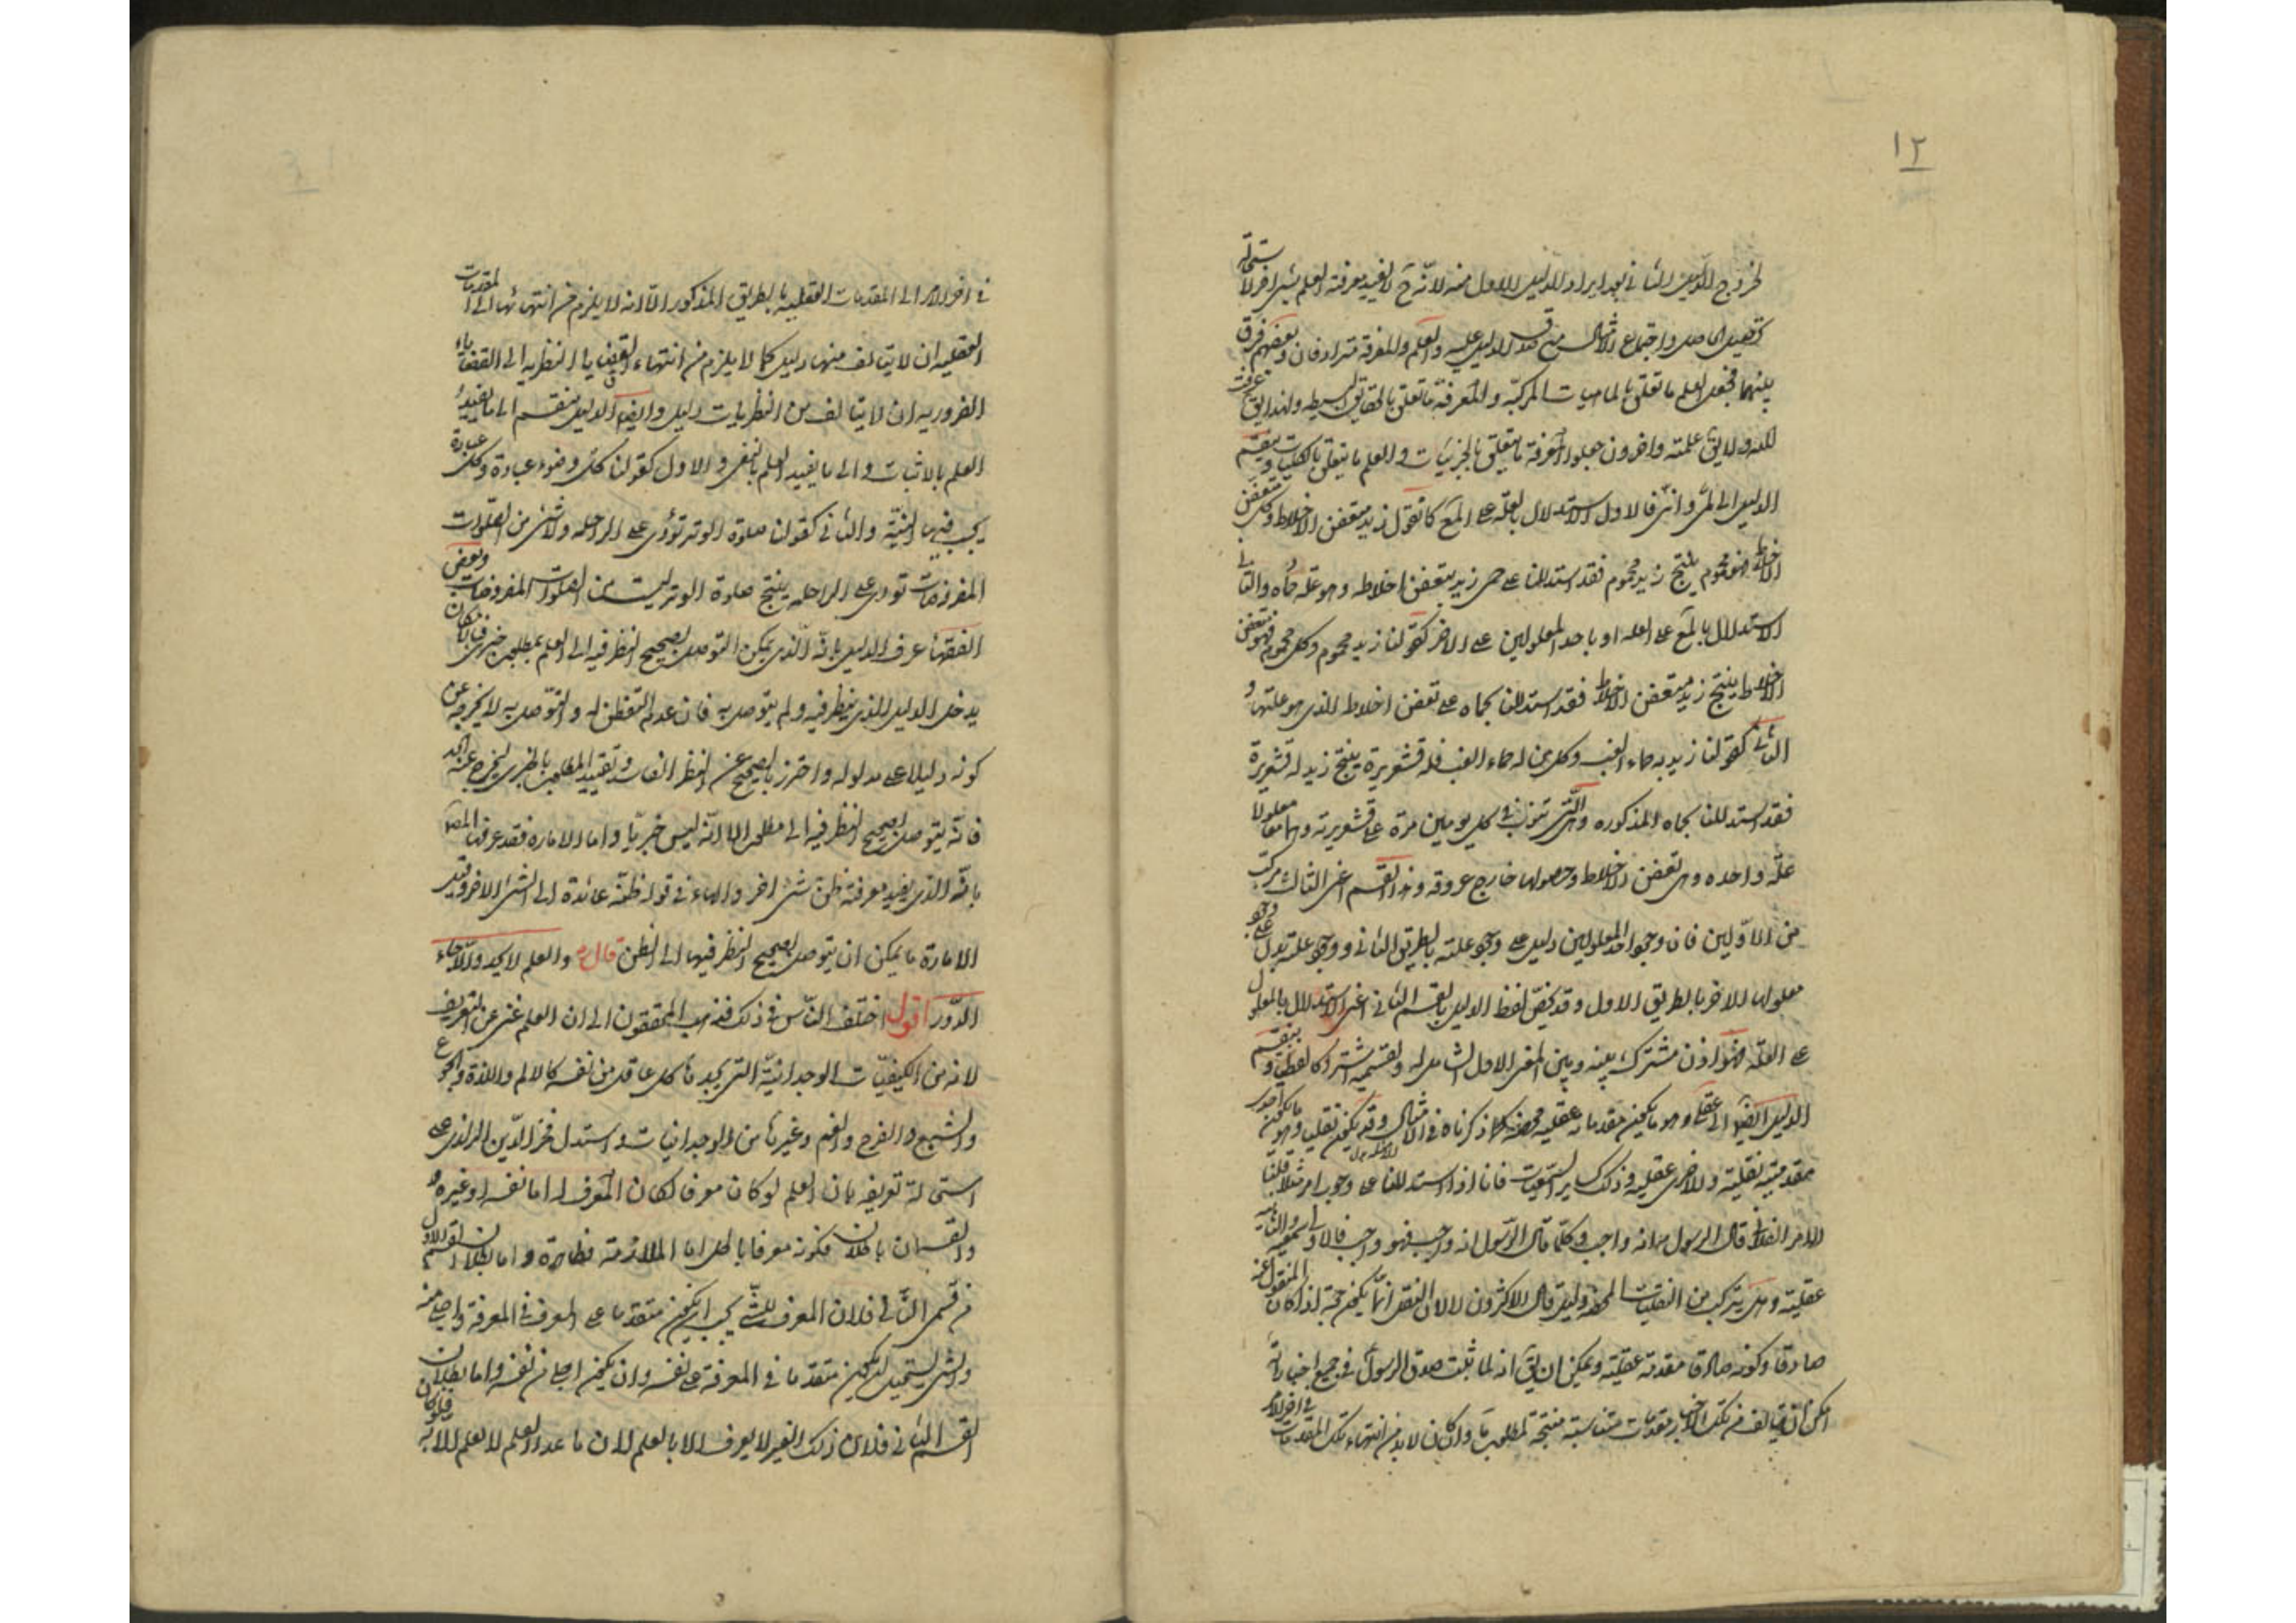 ١٢
لخروج الدليل الثانى بعد ايراد الدليل الاول منه لانه ح لا يفيد معرفته العلم بشئ اخر لاستحالة
تحصيل الحاصل واجتماع الامثال من قصد الدليل عليه والعلم والمعرفة مترادفان وبعضهم فرق
بينهما فجعل العلم ما تعلق بالماهيات المركبة والمعرفة ما تعلق بالحقايق البسيطه ولهذا يق عرفت
الله ولا يق علمته واخرون جعلوا المعرفة ما يتعلق بالجزئيات والعلم ما يتعلق بالكليات وينقسم
الدليل الى لمى وانى فالاول الاستدلال بالعلة على المع كما تقول زيد متعفن الاخلاط وكل متعفن
الاخلاط فهو محموم ينتج زيد محموم فقد استدللنا على حمى زيد بتعفن اخلاطه وهو علة حماه والثانى
الاستدلال بالمع على العله او باحد المعلولين على الاخر كقولنا زيد محموم وكل محموم فهو متعفن
الاخلاط ينتج زيد متعفن الاخلاط فقد استدللنا بحماه على تعفن اخلاطه الذى هو علتها و
الثانى كقولنا زيد به حماء الغب وكل من له حماء الغب فله قشعريرة ينتج زيد له قشعريرة
فقد استدللنا بحماه المذكوره والتى تنوب فى كل يومين مرة على قشعريرته وهما معلولا
علة واحده وهى تعفن الاخلاط وحصولها خارج عروقه وهذا القسم اعنى الثالث مركب
من الاولين فان وجود احد المعلولين دليل على وجود علته بالطريق الثانى ووجود علته يدل على وجود
معلولها الاخر بالطريق الاول وقد يخص لفظ الدليل بالقسم الثانى اعنى الاستدلال بالمعلول
على العلة فهو اذن مشترك بينه وبين المعنى الاول الشامل له ولقسيمه اشتراكا لفظيا وينقسم
الدليل ايضا الى عقلى وهو ما يكون مقدماته عقليه محضه كما ذكرناه فى الامثال وقد يكون نقليا وهو ما يكون احدى
مقدمتيه نقلية والاخرى عقليه وذلك كساير السمعيات فانا اذا استدللنا على وجوب امر مثلا قلنا
الامر الفلانى قال الرسول انه واجب وكلما قال الرسول انه واجب فهو واجب فالاولى سمعيه والثانية
عقلية وهل يتركب من النقليات المحضه دليل قال الاكثرون لا لان النقل انما يكون حجة اذا كان المنقول عنه
صادقا وكونه صادقا مقدمة عقلية ويمكن ان يق انه لما ثبت صدق الرسول فى جميع اخباراته
امكن ان يتالف من تلك الاخبار مقدمات متناسبة منتجة لمطلوب ما وان كان لا بد من انتهاء تلك المقدمات فى اخر الامر
فى اخر الامر الى المقدمات العقليه بالطريق المذكور الا انه لا يلزم من انتهائها الى المقدمات
العقليه ان لا يتالف منها دليل كما لا يلزم من انتهاء القضايا النظريه الى القضاياء
الضروريه ان لا يتالف من النظريات دليل وايضا الدليل ينقسم الى ما يفيد
العلم بالاثبات والى ما يفيد العلم بالنفى والاول كقولنا كل وضوء عبادة وكل عبادة
يجب فيها النية والثانى كقولنا صلوة الوتر تؤدى على الراحله ولا شئ من الصلوات
المفروضات تودى على الراحله ينتج صلوة الوتر ليست من الصلوات المفروضات وبعض
الفقهاء عرف الدليل بانه الذى يمكن التوصل بصحيح النظر فيه الى العلم بمطلوب خبرى فبالامكان
يدخل الدليل الذى لم ينظر فيه ولم يتوصل به فان عدم التفطن له والتوصل به لا يخرجه عن
كونه دليلا على مدلوله واحترز بالصحيح عن النظر الفاسد وتقييد المطلوب بالخبرى ليخرج عنه الحد
فانه يتوصل بصحيح النظر فيه الى مطلوب الا انه ليس خبريا واما الاماره فقد عرفها المص
بانه الذى يفيد معرفته ظن شئ اخر والهاء فى قوله ظنه عائدة الى الشئ الاخر وقيل
الامارة ما يمكن ان يتوصل بصحيح النظر فيها الى الظن قال والعلم لا يحد والا جاء
الدور اقول اختلف الناس فى ذلك فذهب المحققون الى ان العلم غنى عن التعريف
لانه من الكيفيات الوجدانية التى يجدها كل عاقل من نفسه كالالم واللذة والجوع
والشبع والفرح والغم وغيرها من الوجدانيات واستدل فخر الدين الرازى على
استحالة تعريفه بان العلم لو كان معرفا لكان المعرف له اما نفسه او غيره
والقسمان باطلان فكونه معرفا باطل اما الملازمة فظاهرة واما بطلان القسم الاول
من قسمى التالى فلان المعرف للشئ يجب ان يكون متقدما على المعرف فى المعرفة واجلى منه
والشئ يستحيل ان يكون متقدما فى المعرفة على نفسه وان يكون اجلى من نفسه واما بطلان
القسم الثانى فلان ذلك الغير لا يعرف الا بالعلم لان ما عدا العلم لا يعلم الا به فلو كان